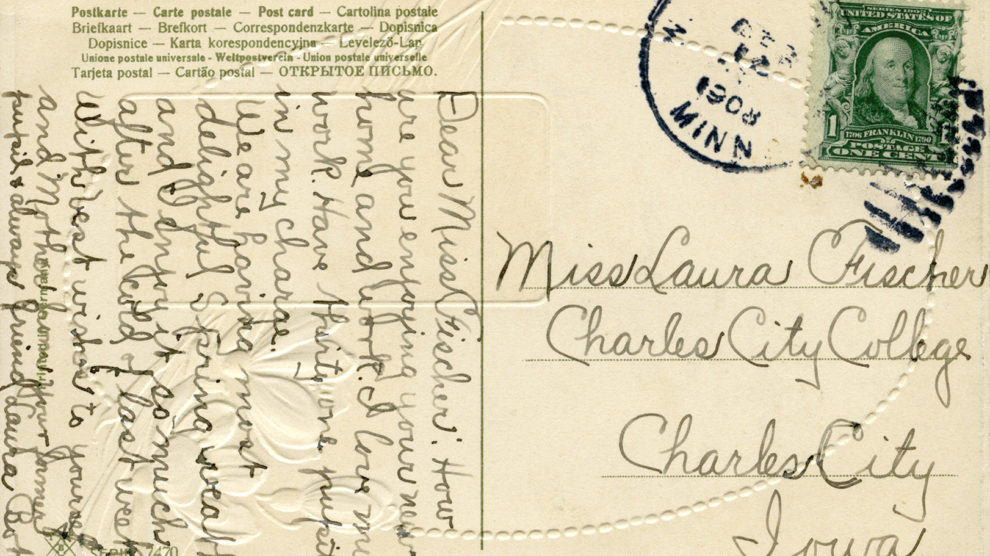 Postkarte — Carte postale — Post card — Cartolina postale
Briefkaart — Brefkort — Correspondenzkarte — Dopisnica
Dopisnice — Karta korespondencyjna — Levelező-Lap
Unione postale universale - Weltpostverein - Union postale universelle
Tarjeta postal — Cartão postal — ОТКРЫТОЕ ПИСЬМО.
MINN
1908
SERIES 1902
UNITED STATES OF
AMERICA
1
1706 FRANKLIN 1790
POSTAGE
ONE CENT
Dear Miss Fischer: How
are you enjoying your new
home and work. I love my
work. Have thirty one pupi
in my charge.
We are having most
delightful Spring weath
and I enjoy it so much
after the cold of last week
With best wishes to yourse
and Mother your former
pupil & always friend Laura
Miss Laura Fischer
Charles City College
Charles City
Iowa